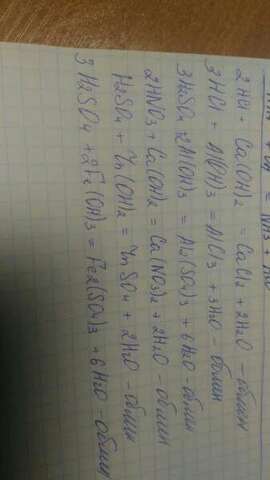 2HCl + Ca(OH)2 = CaCl2 + 2H2O - обмен
3HCl + Al(OH)3 = AlCl3 + 3H2O - обмен
3H2SO4 2Al(OH)3 = Al2(SO4)3 + 6H2O - обмен
2HNO3 + Ca(OH)2 = Ca(NO3)2 + 2H2O - обмен
H2SO4 + Zn(OH)2 = ZnSO4 + 2H2O - обмен
3H2SO4 + 2Fe(OH)3 = Fe2(SO4)3 + 6H2O - обмен